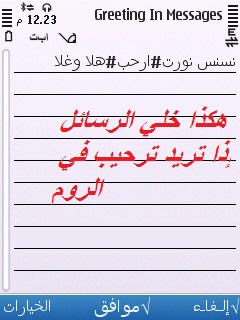 Greeting In Messages
12.23 م
ابت
نسنس نورت#ارحب#هلا وغلا
هكذا خلي الرسائل
إذا تريد ترحيب في
الروم
الخيارات √موافق √إلـغـاء